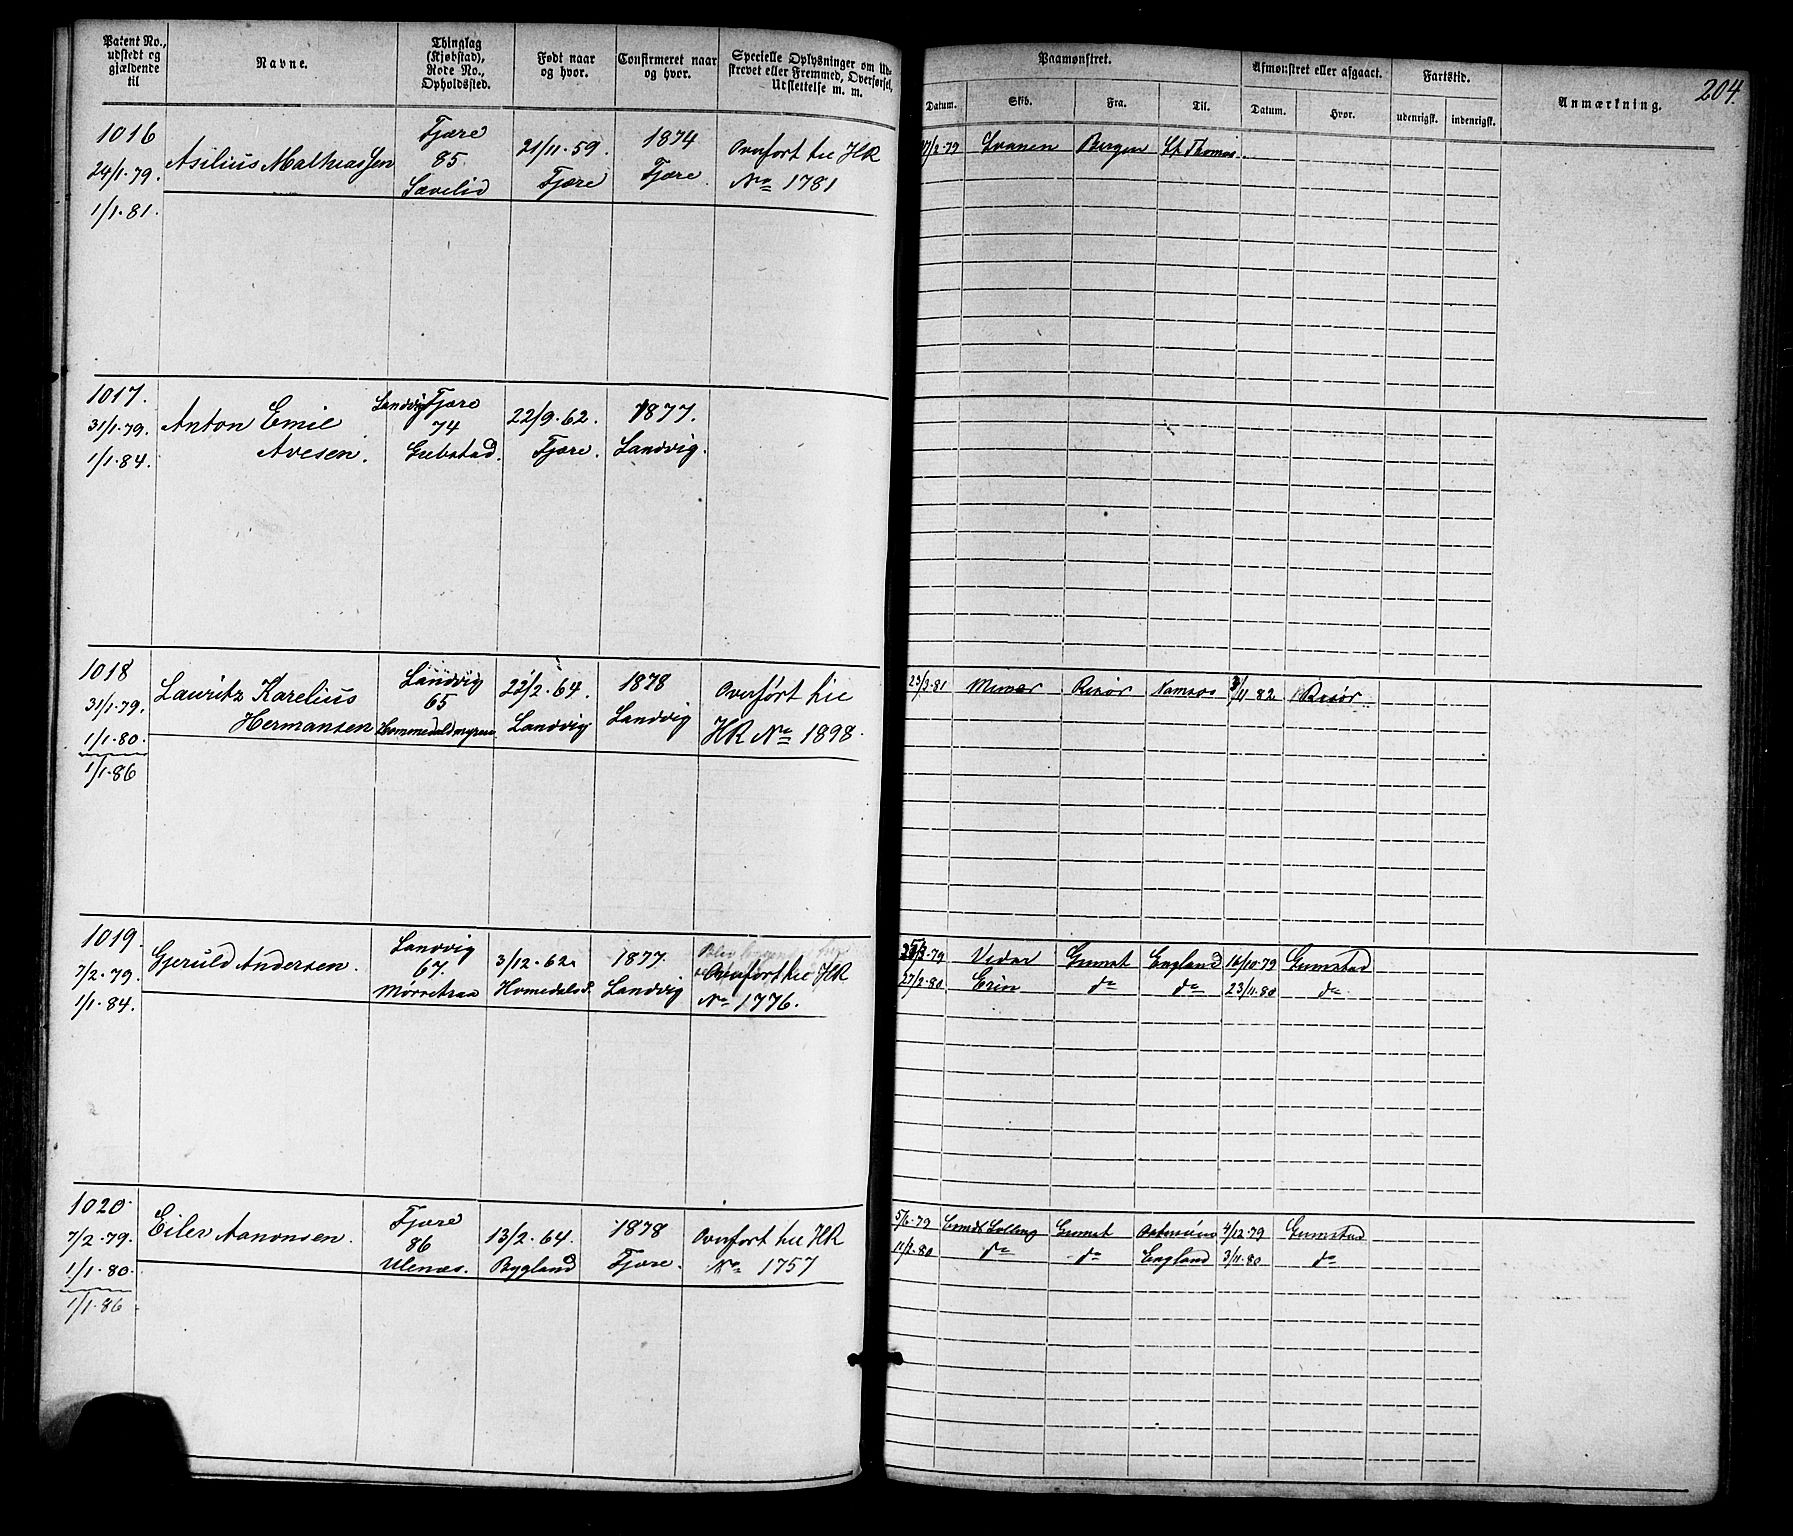 204.
Patent No., udstedt og gjældende til
Navne.
Thinglag (Kjøbstad), Rode No., Opholdssted.
Født naar og hvor.
Confirmeret naar og hvor.
Specielle Oplysninger om Udskrevet eller Fremmed, Overførsel, Udslettelse m. m.
Paamønstret.
Afmønstret eller afgaaet.
Fartstid.
Anmærkning.
Datum. Skib. Fra. Til. Datum. Hvor. udenrigsk. indenrigsk.
1016 Fjære 1874
24/1.79. Asilius Mathiassen 85. 21/11.59. Fjære Overført til HR
1/1.81. Sævelid Fjære No 1781
Svanen Bergen St Thomas
1017. Landvig Fjære 22/9.62. 1877.
31/1.79. Anton Emil 74 Fjære. Landvig.
1/1.84. Avesen.
1018 Landvig 22/2.64. 1878 Overført til
31/1.79. Lauritz Karelius 65 Landvig Landvig HR No 1898.
1/1.80. Hermansen
1/1.86
23/3.81 Risør Namsos 82 Risør
1019. Landvig 3/12.62 1877.
7/2.79. Gjeruld Andersen. 67. Landvig Overført til HR
1/1.84. No 1776.
79 Vidar Grimst England 16/10.79 Grimstad
27/2.80 Erin do do 23/11.80 do
1020. Fjære 13/2.64. 1878 Overført til HR
7/2.79. Eilev Aanonsen. 86 Bygland Fjære. No 1757
1/1.80. Ulenæs.
1/1.86
5/6.79 Grimst 4/12.79 Grimstad
80 do do England 3/11.80 do